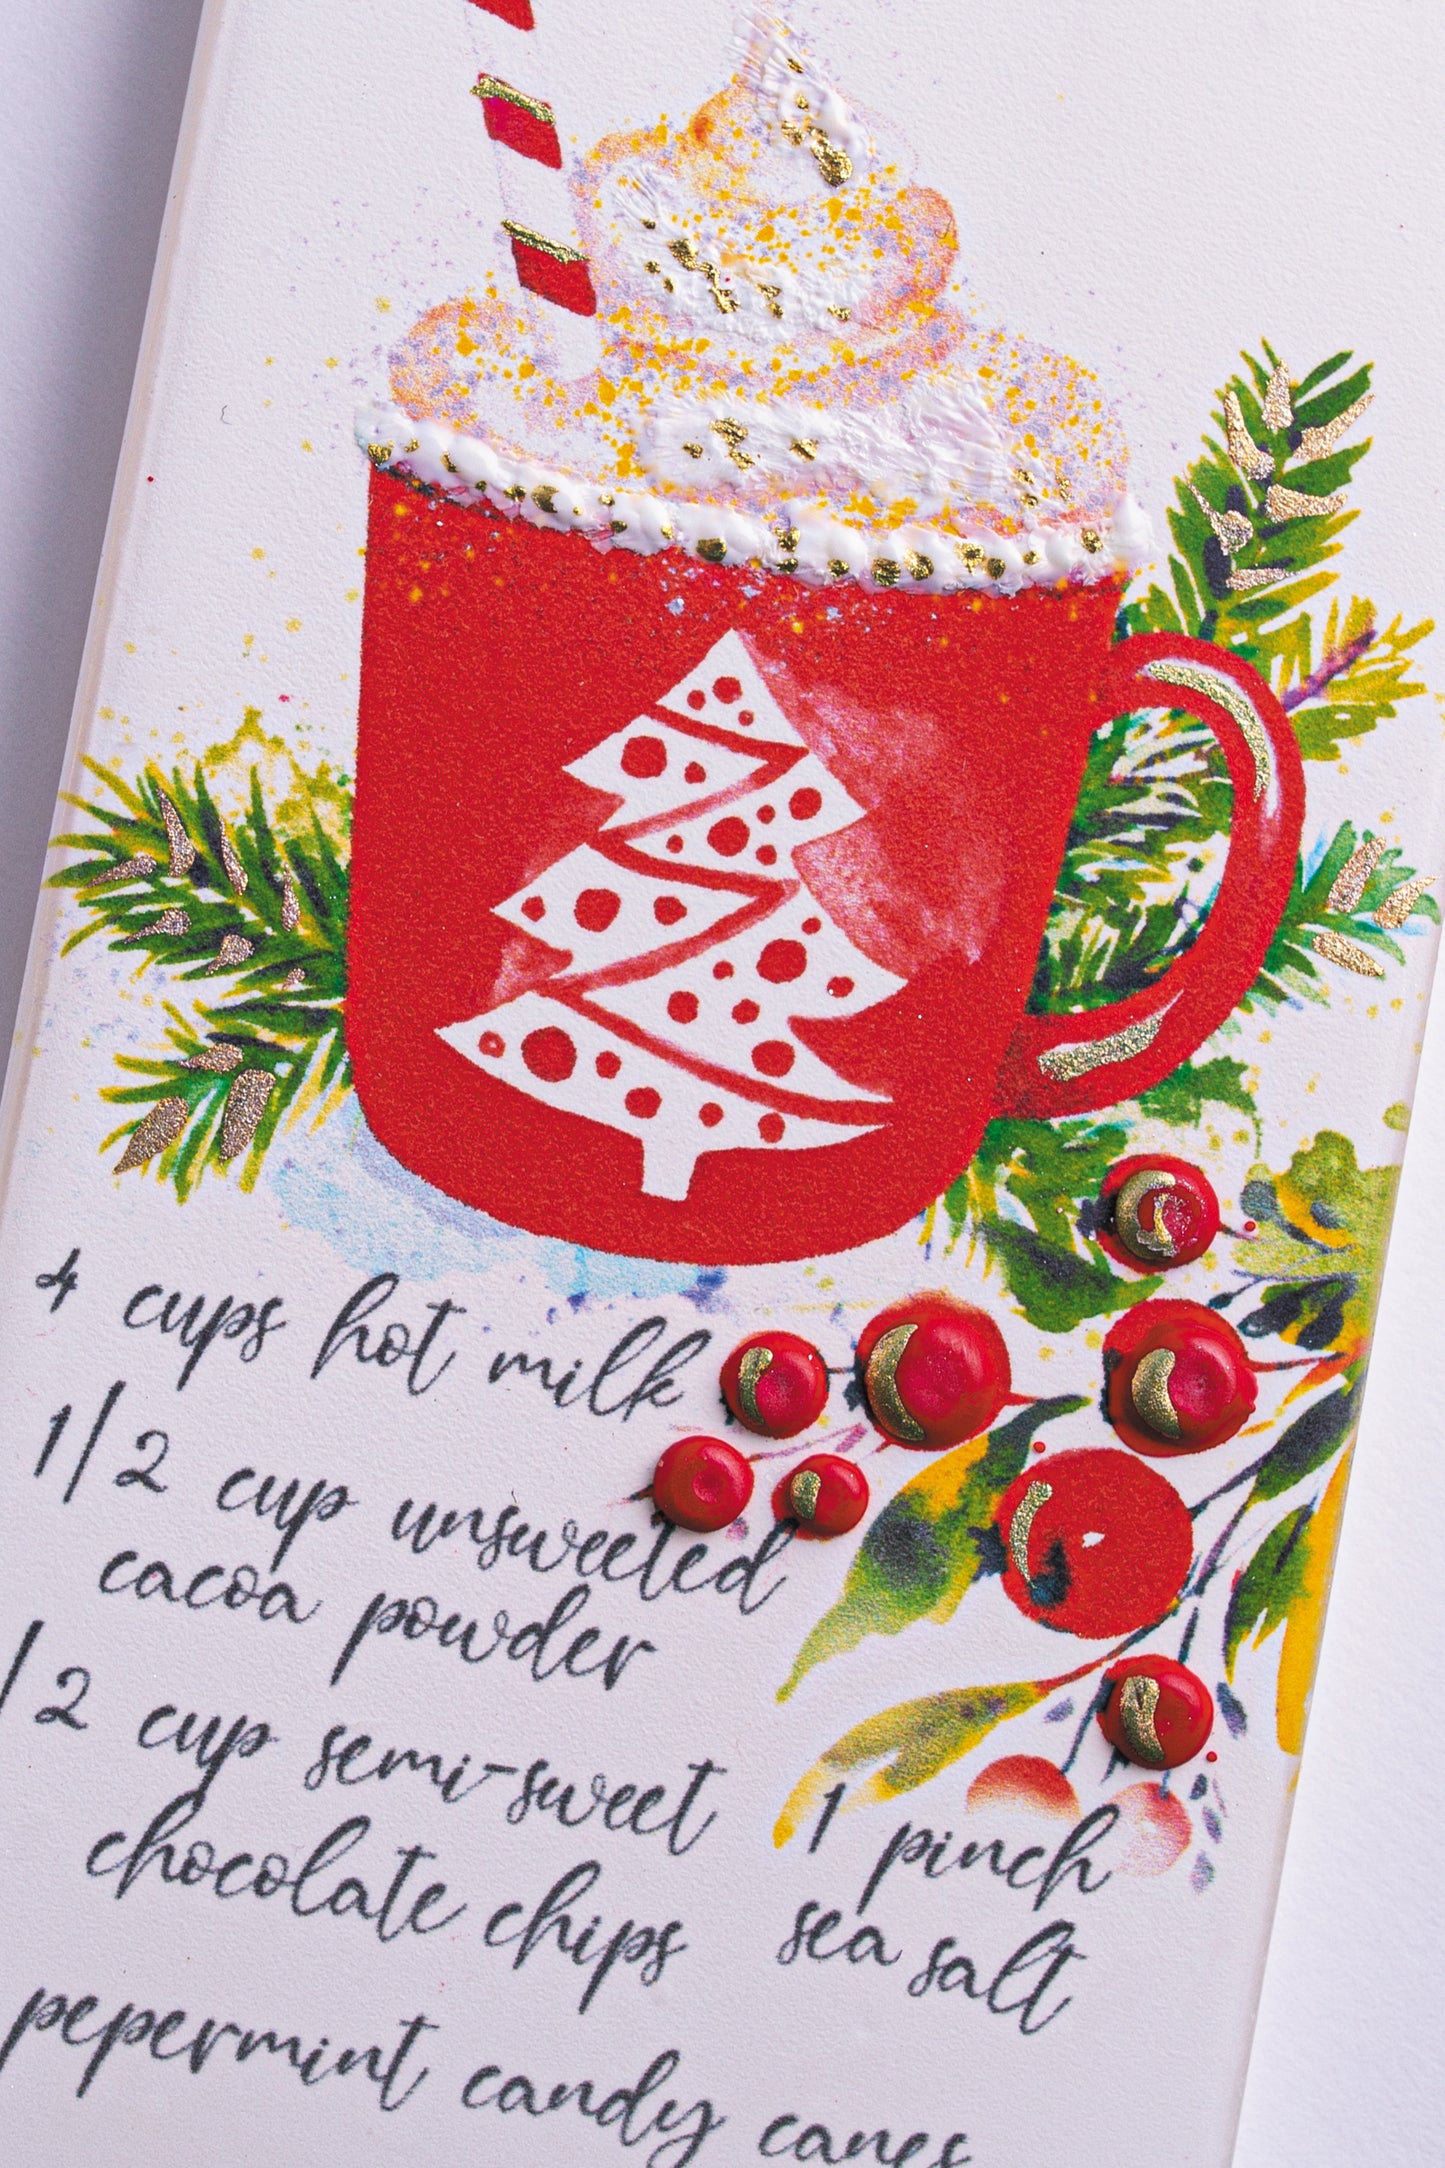 4 cups hot milk
1/2 cup unsweeted
cacoa powder
1/2 cup semi-sweet
chocolate chips
1 pinch
sea salt
pepermint candy canes